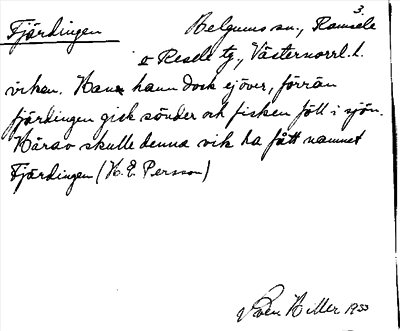 Fjärdingen Helgums sn., Ramsele 3.
o Resele tg., Västernorrl. l.
viken. Han hann dock ej över, förrän
fjärdingen gick sönder och fisken föll i sjön.
Härav skulle denna vik ha fått namnet
Fjärdingen (K. E. Persson)
Sven Hiller 1933